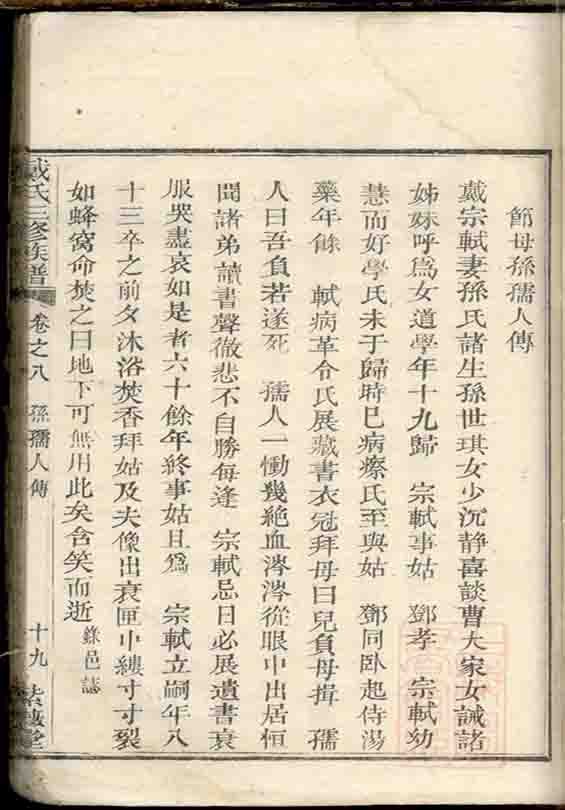 節母孫孺人傳
戴宗軾妻孫氏諸生孫世琪女少沉静喜談曹大家女誡諸
姊妹呼爲女道學年十九歸 宗軾事姑 鄧孝 宗軾幼
慧而好學氏未于歸時已病瘵氏至與姑 鄧同卧起侍湯
藥年餘 軾病革令氏展藏書衣冠拜母曰兒負母揖 孺
人曰吾負若遂死 孺人一慟幾絶血涔涔從眼中出居恒
聞諸弟讀書聲微悲不自勝每逢 宗軾忌日必展遺書衰
服哭盡哀如是者六十餘年終事姑且爲 宗軾立嗣年八
十三卒之前夕沐浴焚香拜姑及夫像出衰匣中縷寸寸裂
如蜂窩命焚之曰地下可無用此矣含笑而逝 錄邑誌
戴氏三修族譜 卷之八 孫孺人傳 十九 堂